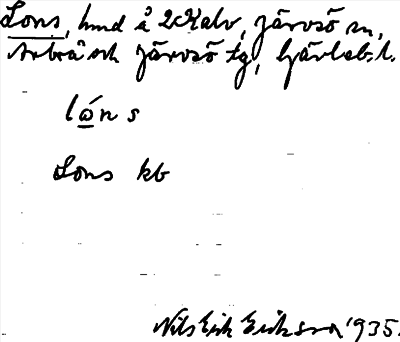 Lons, hmd å 2 Kalv, Järvsö sn,
Arbrå och Järvsö tg, Gävleb. l.
lóns
Lons kb
Nils Erik Erikson 1935.